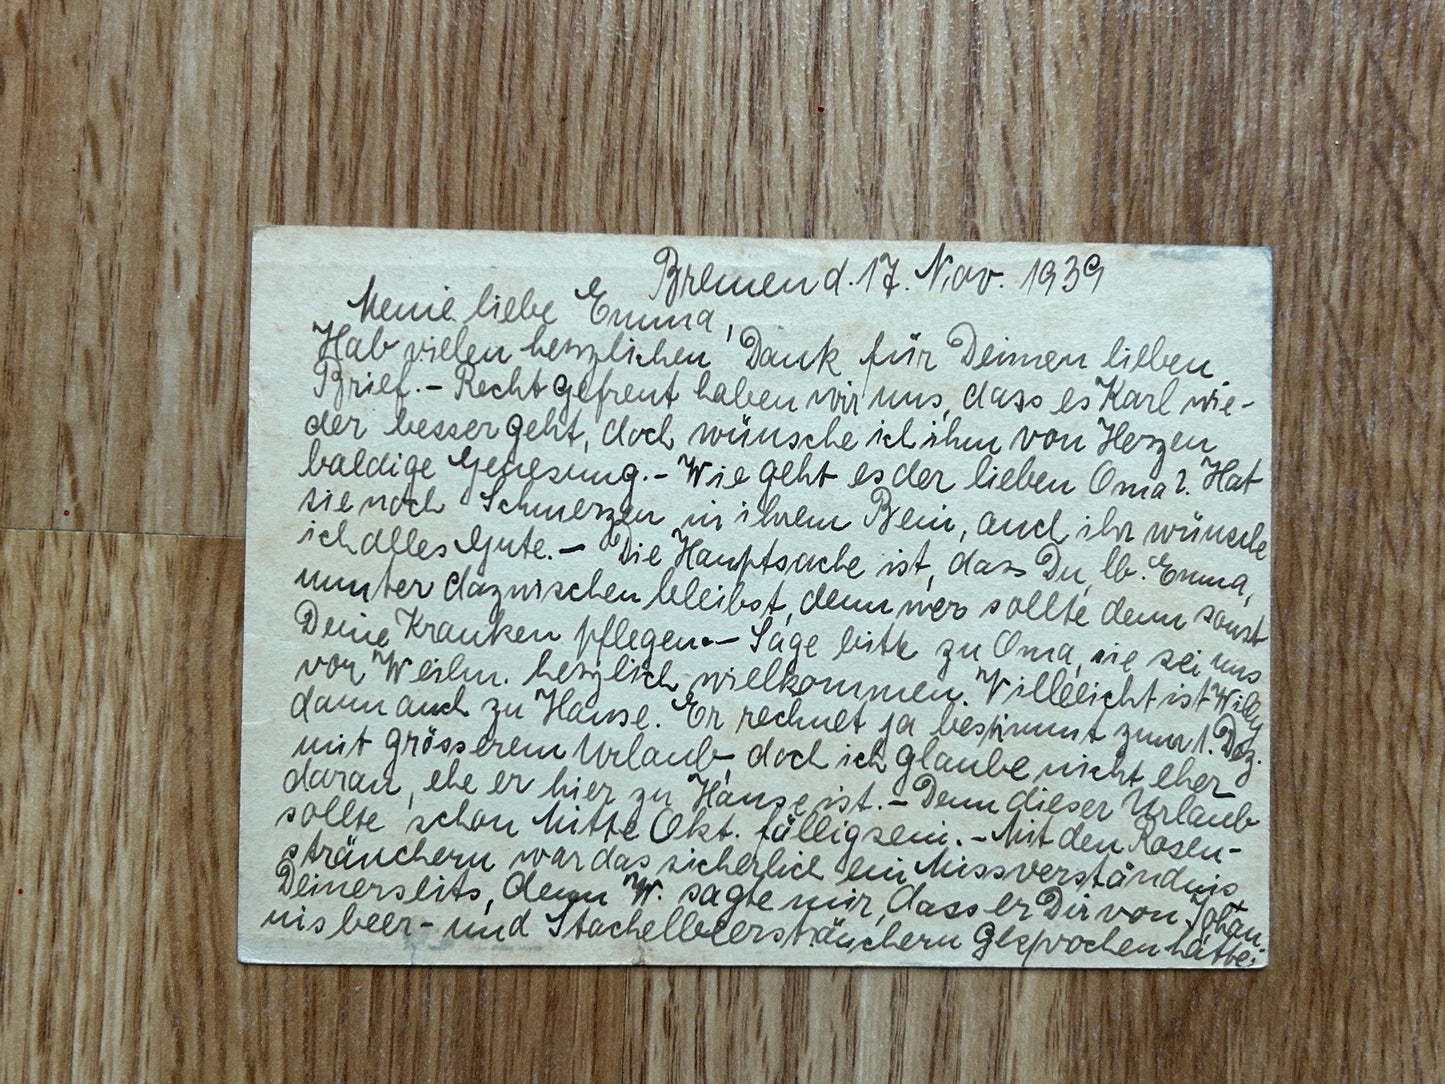 Bremen d. 17. Nov. 1939
Meine liebe Emma,
Hab vielen herzlichen Dank für Deinen lieben
Brief. – Recht gefreut haben wir uns, dass es Karl wie-
der besser geht, doch wünsche ich ihm von Herzen
baldige Genesung. – Wie geht es der lieben Oma? Hat
sie noch Schmerzen in ihrem Bein, auch ihr wünsche
ich alles Gute. – Die Hauptsache ist, dass Du, lb. Emma,
munter dazwischen bleibst, denn wer sollte denn sonst
Deine Kranken pflegen. – Sage bitte zu Oma, sie sei uns
vor Weihn. herzlich willkommen. Villeicht ist Willy
dann auch zu Hause. Er rechnet ja bestimmt zum 1. Dez.
mit grösserem Urlaub, doch ich glaube nicht eher
daran, ehe er hier zu Hause ist. – Denn dieser Urlaub
sollte schon Mitte Okt. fällig sein. – Mit den Rosen-
sträuchern war das sicherlich ein Missverständnis
Deinerseits, denn W. sagte mir, dass er Dir von Johan-
nisbeer- und Stachelbeersträuchern gesprochen hätte.